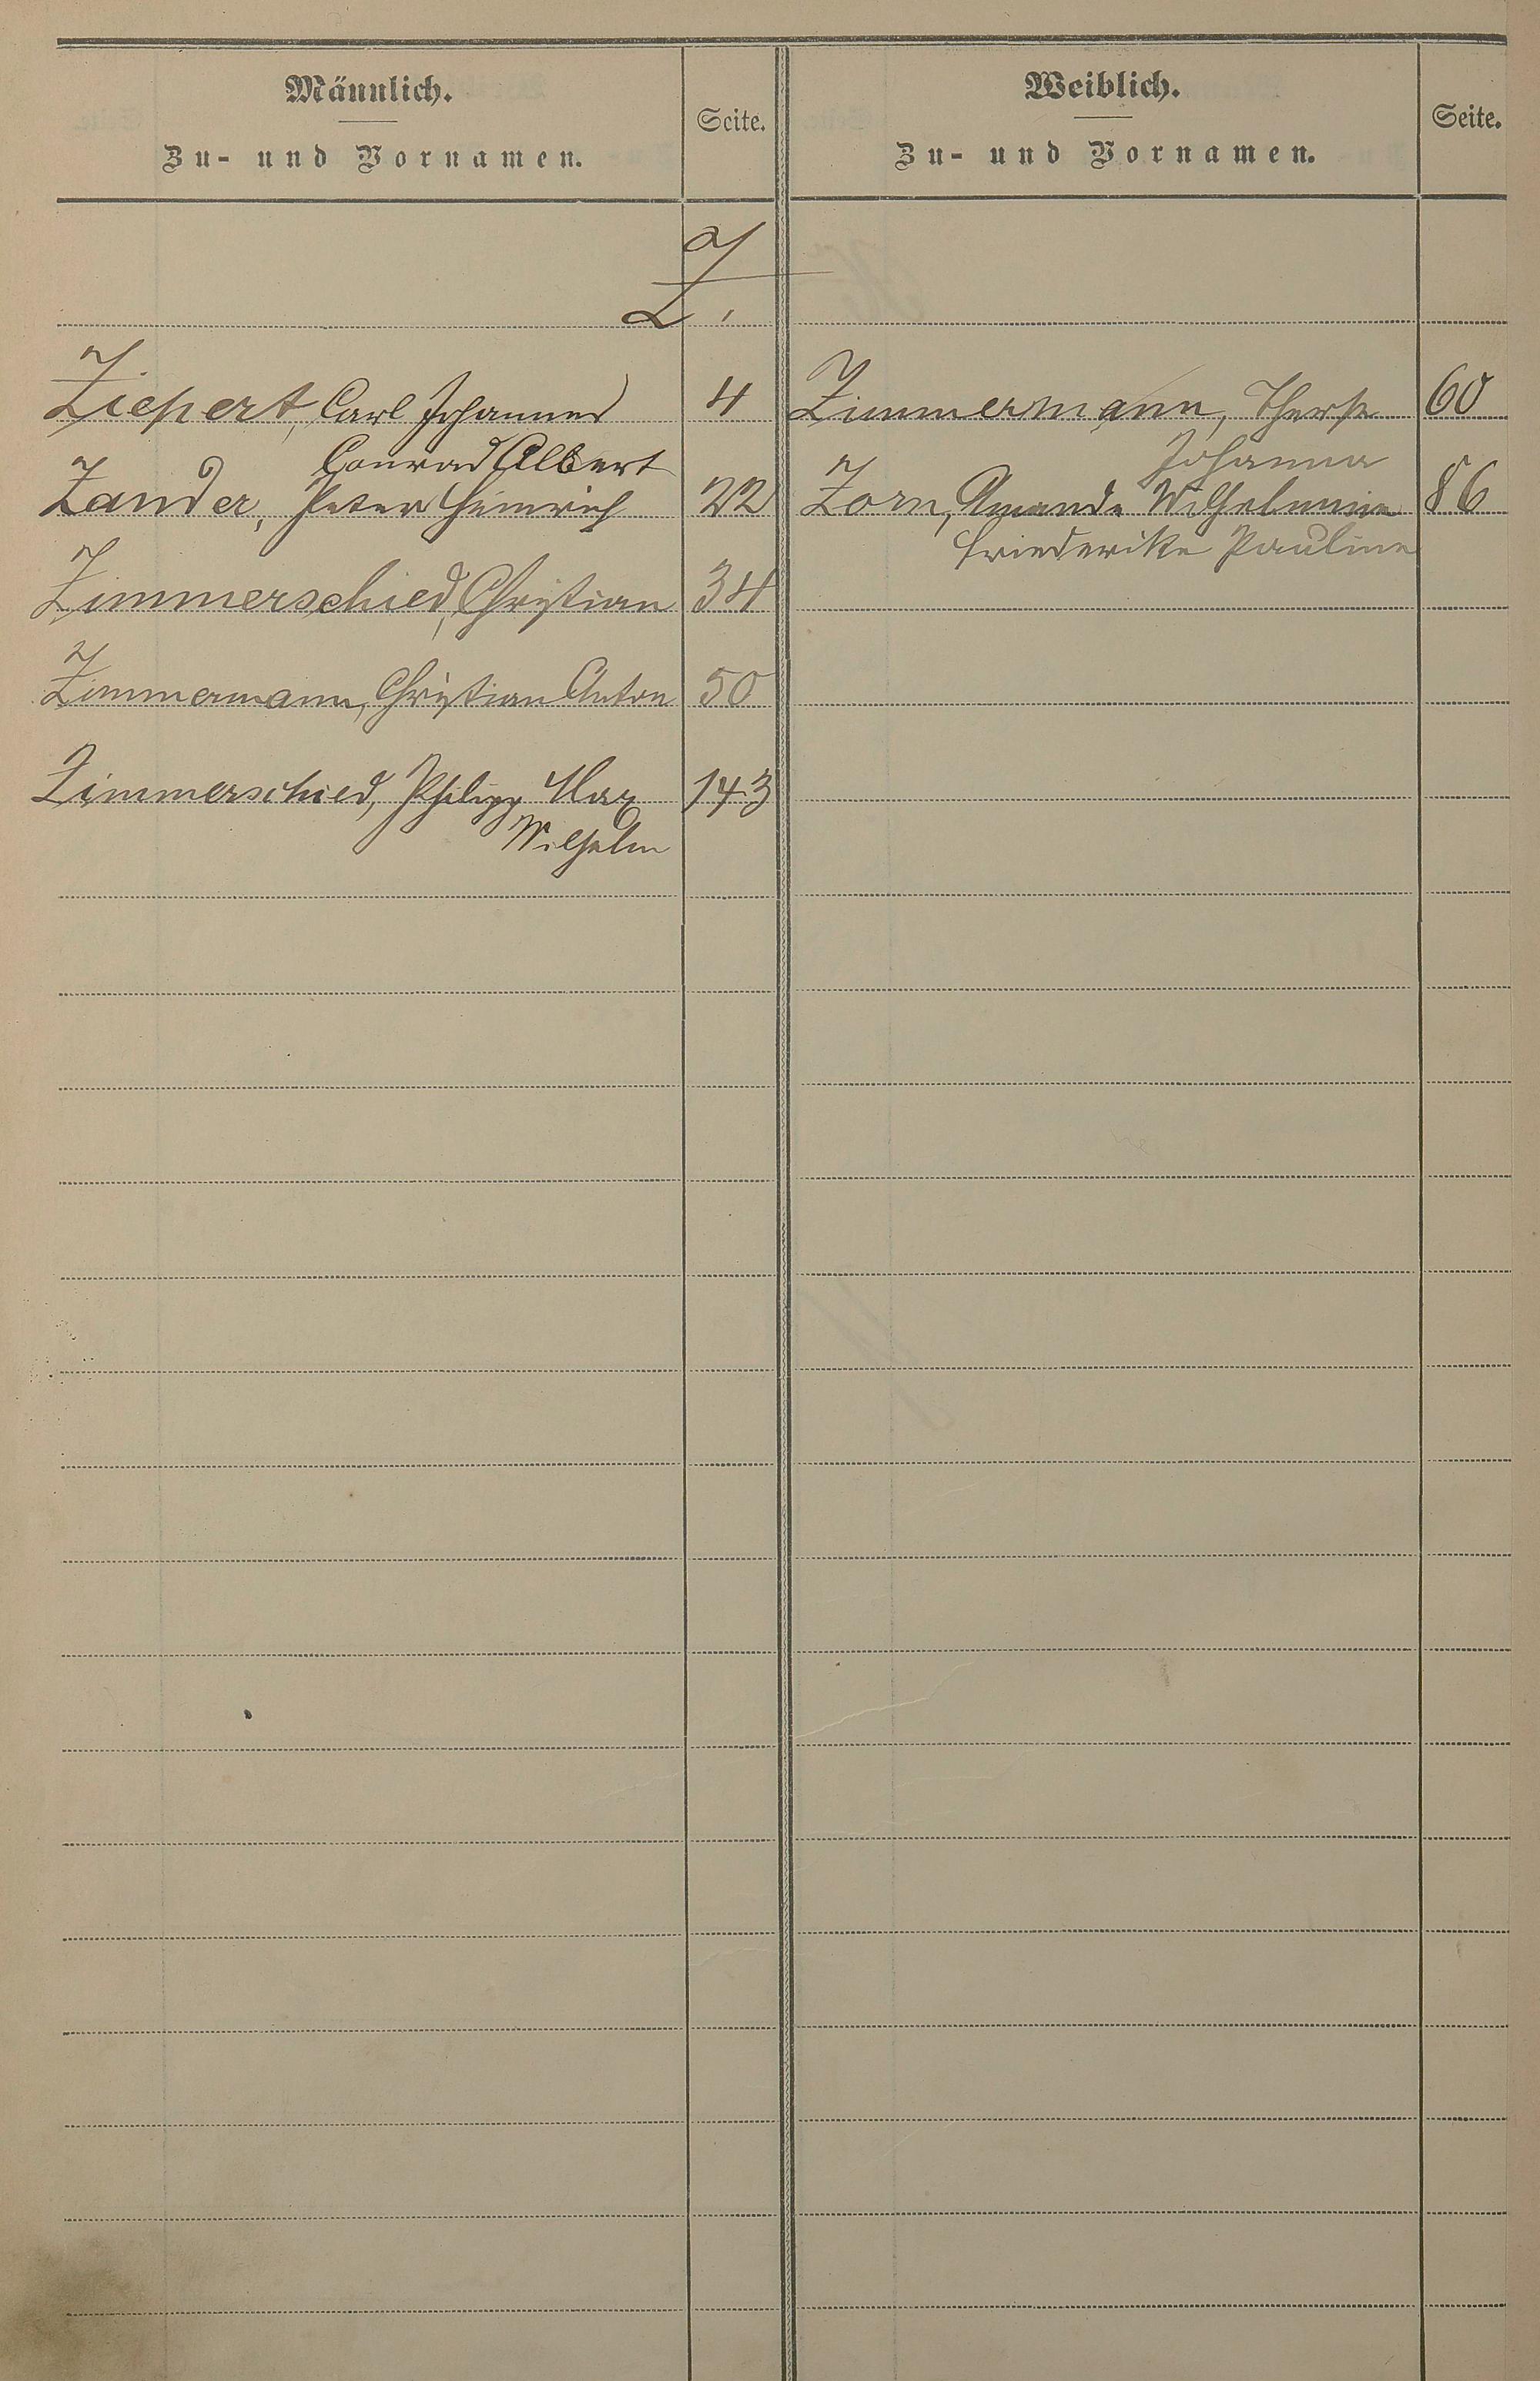 Männlich.
Zu- und Vornamen.
Seite.
Weiblich.
Zu- und Vornamen.
Seite.
Z.
Ziepert, Carl Johannes 4
Conrad Albert
Zander, Peter Heinrich 22
Zimmerschied, Christian 34
Zimmermann, Christian Anton 50
Zimmerschied, Philipp Max 143
Wilhelm
Zimmermann, Therese 60
Johanna
Zorn, Amanda Wilhelmine 86
Friederike Pauline